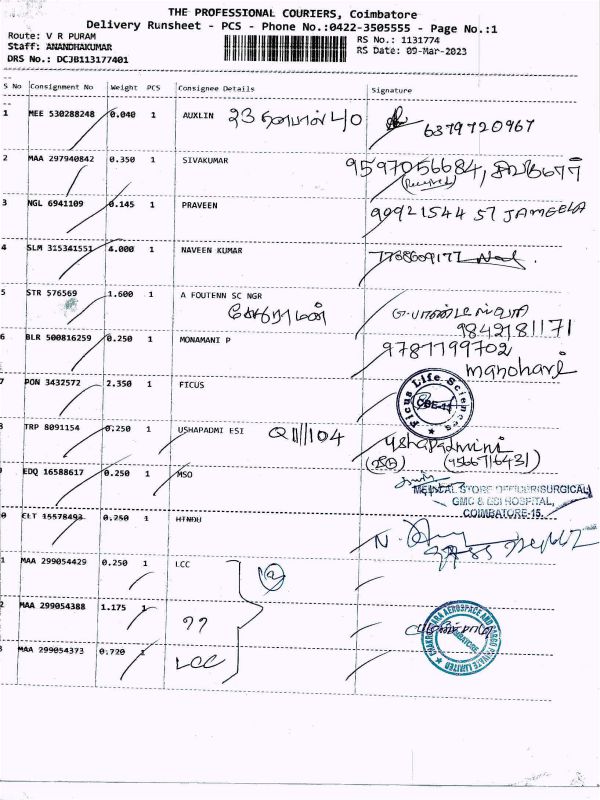 THE PROFESSIONAL COURIERS, Coimbatore
Delivery Runsheet - PCS - Phone No.:0422-3505555 - Page No.:1
Route: V R PURAM
RS No.: 1131774
Staff: ANANDHAKUMAR
RS Date: 09-Mar-2023
DRS No.: DCJB113177401
S No Consignment No Weight PCS Consignee Details Signature
1 MEE 530288248 0.040 1 AUXLIN 6379720967
2 MAA 297940842 0.350 1 SIVAKUMAR 9597056684,
3 NGL 6941109 0.145 1 PRAVEEN 9992154457 JAMEELA
4 SLM 315341551 4.000 1 NAVEEN KUMAR
5 STR 576569 1.600 1 A FOUTENN SC NGR
சேரமன்
9842181171
6 BLR 500816259 0.250 1 MONAMANI P 9787799702
manohari
7 PON 3432572 2.350 1 FICUS Ficus Life Sciences
8 TRP 8091154 0.250 1 USHAPADMI ESI Q111/104 ushapadmini
(9566716431)
9 EDQ 16588617 0.250 1 MSO
MEDICAL STORE OFFICER(SURGICAL)
GMC & ESI HOSPITAL,
COIMBATORE-15.
0 CLT 15578493 0.250 1 HINDU
1 MAA 299054429 0.250 1 LCC
2 MAA 299054388 1.175 1 ,,
3 MAA 299054373 0.720 1 LCC